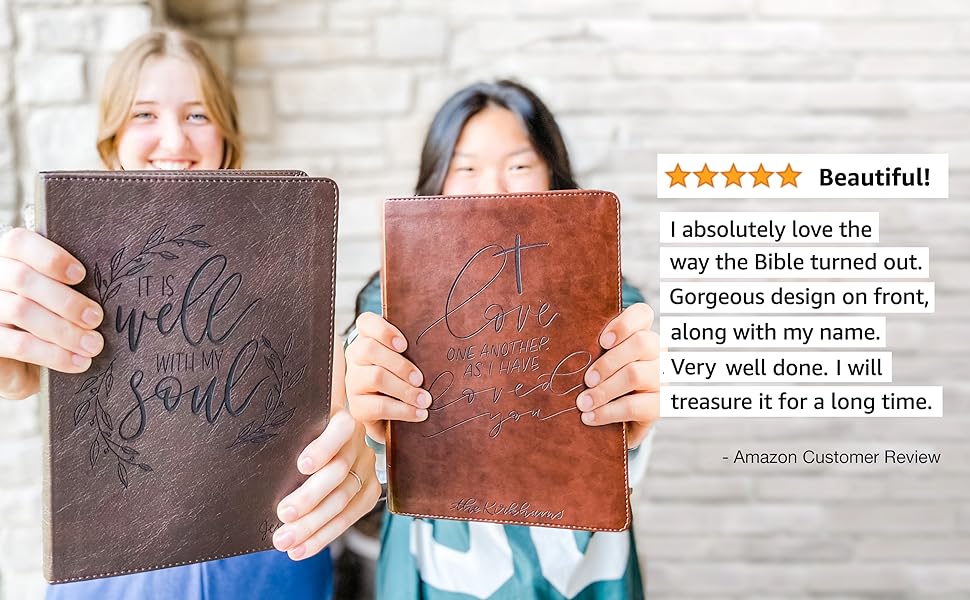 IT IS
well
WITH MY
soul
love
ONE ANOTHER.
AS I HAVE
loved
you
the Kirkhams
Beautiful!
I absolutely love the
way the Bible turned out.
Gorgeous design on front,
along with my name.
Very well done. I will
treasure it for a long time.
- Amazon Customer Review